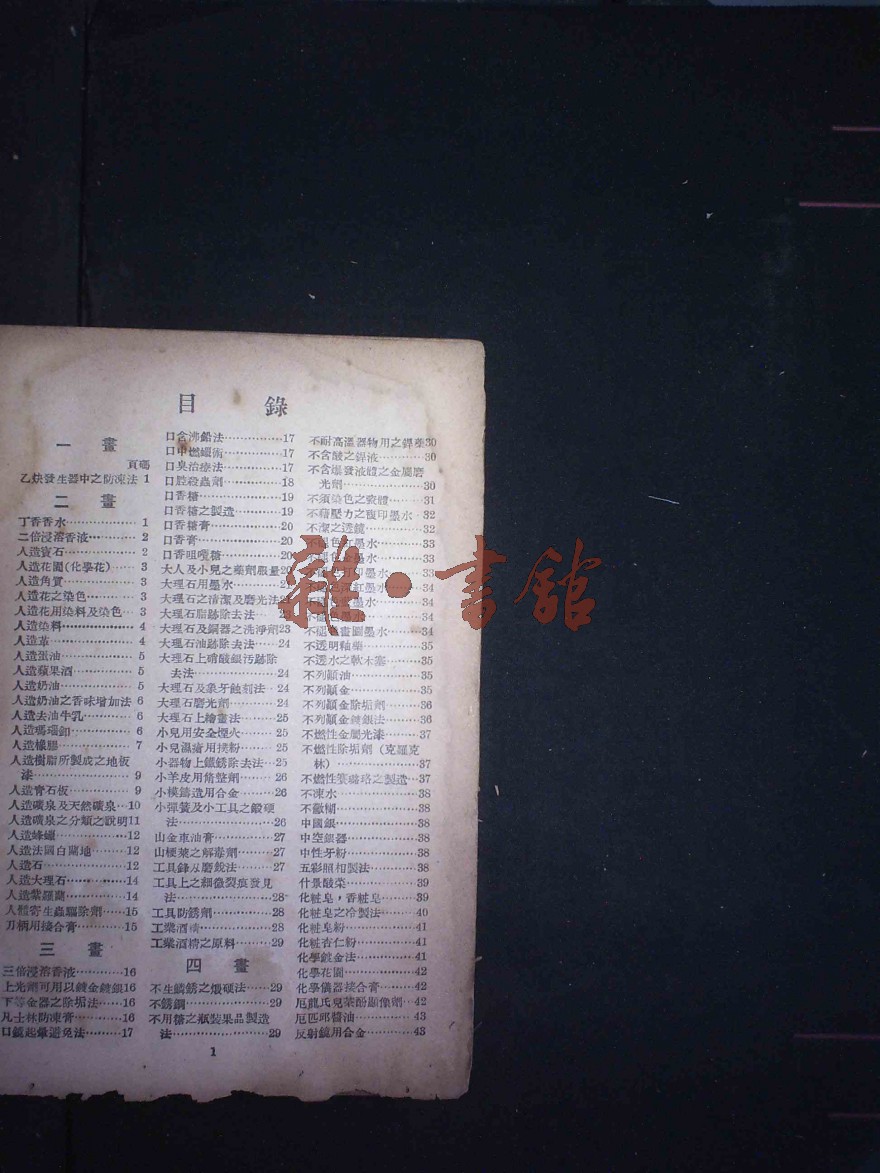 目錄
一畫
頁碼
乙炔發生器中之防凍法 1
二畫
丁香香水……………1
二倍浸溶香液……… 2
人造寶石…………… 2
人造花園(化學花)… 3
人造角質…………… 3
人造花之染色……… 3
人造花用染料及染色… 3
人造染料…………… 4
人造革……………… 4
人造蛋油…………… 5
人造蘋果酒………… 5
人造奶油…………… 5
人造奶油之香味增加法 6
人造去油牛乳……… 6
人造瑪瑙鈕………… 6
人造橡膠…………… 7
人造樹脂所製成之地板
漆…………………… 9
人造青石板………… 9
人造礦泉及天然礦泉…10
人造礦泉之分類之說明11
人造蜂蠟……………12
人造法國白蘭地……12
人造石………………12
人造大理石…………14
人造紫羅蘭…………14
人體寄生蟲驅除劑…15
刀柄用接合膏………15
三畫
三倍浸溶香液………16
上光劑可用以鍍金鍍銀16
下等金器之除垢法…16
凡士林防凍膏………16
口鏡起暈避免法……17
口含沸鉛法…………17
口中燃蠟術…………17
口臭治療法…………17
口腔殺蟲劑…………18
口香糖………………19
口香糖之製造………19
口香糖膏……………20
口香膏………………20
口香咀嚼糖…………20
大人及小兒之藥劑服量20
大理石用墨水
大理石之清潔及磨光法
大理石脂跡除去法
大理石及銅器之洗淨劑23
大理石油跡除去法…24
大理石上硝酸銀污跡除
去法…………………24
大理石及象牙蝕刻法…24
大理石磨光劑………24
大理石上繪畫法……25
小兒用安全煙火……25
小兒濕瘡用撲粉……25
小器物上鐵銹除去法…25
小羊皮用角整劑……26
小模鑄造用合金……26
小彈簧及小工具之鍛硬
法……………………26
山金車油膏…………27
山梗菜之解毒劑……27
工具鋒刄磨銳法……27
工具上之細微裂痕發見
法……………………28
工具防銹劑…………28
工業酒精……………28
工業酒精之原料……29
四畫
不生鱗銹之煅硬法…29
不銹鋼………………29
不用糖之瓶裝果品製造
法……………………29
不耐高溫器物用之銲藥30
不含酸之銲液………30
不含爆發液體之金屬磨
光劑…………………30
不須染色之蜜體……31
不藉壓力之複印墨水…32
不潔之透鏡…………32
紅墨水……33
墨水……33
墨水……33
紅墨水……34
墨水……34
墨水……34
畫圖墨水……34
不透明釉藥…………35
不透水之軟木塞……35
不列顛油……………35
不列顛金……………35
不列顛金除垢劑……36
不列顛金鍍銀法……36
不燃性金屬光漆……37
不燃性除垢劑（克羅克
林）…………………37
不燃性篆璐珞之製造…37
不凍水………………38
不黴糊………………38
中國銀………………38
中空銀器……………38
中性牙粉……………38
五彩照相製法………38
什景酸菜……………39
化粧皂，香粧皂……39
化粧皂之冷製法……40
化粧皂粉……………41
化粧杏仁粉…………41
化學鍍金法…………41
化學花園……………42
化學儀器接合膏……42
厄龍氏兒茶酚顯像劑…42
厄匹那醬油…………43
反射鏡用合金………43
1
雜·書館